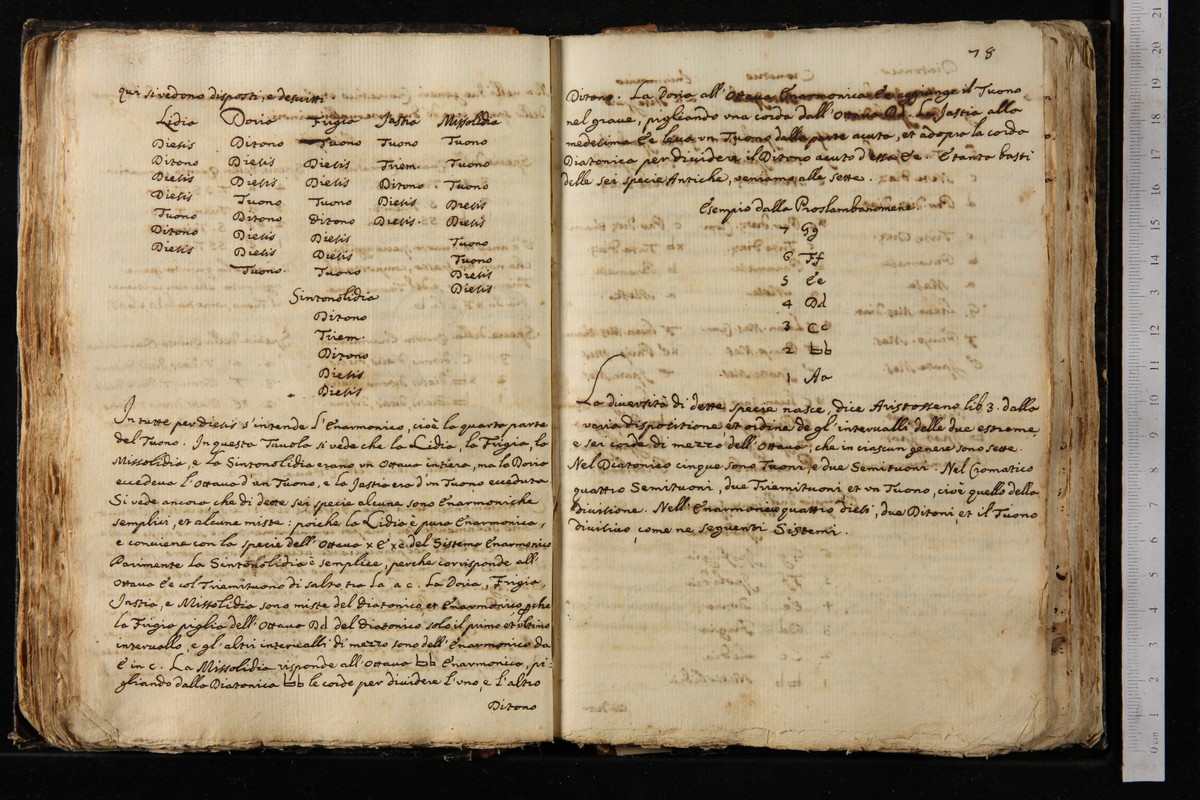 qui si vedono disposti, e descritti
Lidia Doria Frigia Jastia Missolidia
Diesis Ditono Tuono Tuono Tuono
Ditono Diesis Diesis Triem. Tuono
Diesis Diesis Diesis Ditono Tuono
Diesis Tuono Tuono Diesis Diesis
Tuono Ditono Ditono Diesis Diesis
Ditono Diesis Diesis Tuono
Diesis Diesis Diesis Tuono
Tuono Tuono Diesis
Diesis
Sintonolidia
Ditono
Triem.
Ditono
Diesis
Diesis
In tutte per diesis s'intende l'Enarmonico, cioè la quarta parte
del Tuono. In questa Tavola si vede che la Lidia, la Frigia, la
Missolidia, e la Sintonolidia erano un Ottava intiera, ma la Doria
eccedeva l'Ottava d'un Tuono, e la Jastia era d'un Tuono ecceduta
Si vede ancora, che di dette sei specie alcune sono Enarmoniche
semplici, et alcune miste: poiche la Lidia è pura Enarmonica,
e conviene con la specie dell'Ottava x E x e del Sistema Enarmonico
Parimente la Sintonolidia è semplice, perche corrisponde all'
Ottava Ee col Triemituono di salto tra la a c. La Doria, Frigia,
Jastia, e Missolidia sono miste del diatonico, et Enarmonico, pche
la Frigia piglia dell'Ottava Dd del diatonico solo il primo et ultimo
intervallo, e gl'altri intervalli di mezzo sono dell'Enarmonico da
E in c. La Missolidia risponde all'Ottava ♮♮ Enarmonica, pi-
gliando dalla Diatonica ♮♮ le corde per dividere l'uno, e l'altro
Ditono
78
Ditono. La Doria all'Ottava Enarmonica Ee aggiunge il Tuono
nel grave, pigliando una corda dall'Ottava Dd. La Jastia alla
medesima Ee leva un Tuono dalla parte acuta, et adopra la corda
Diatonica per dividere il Ditono acuto d'essa Ee. E tanto basti
delle sei specie Antiche, veniamo alle sette.
Esempio dalla Proslambanomene.
7 Gg
6 Ff
5 Ee
4 Dd
3 Cc
2 ♮♮
1 Aa
La diversità di dette specie nasce, dice Aristosseno lib 3. dalla
varia dispositione et ordine de gl'intervalli delle due estreme,
e sei corde di mezzo dell'Ottava, che in ciascun genere sono sette.
Nel Diatonico cinque sono Tuoni, e due Semituoni. Nel Cromatico
quattro Semituoni, due Triemituoni et un Tuono, cioè quello della
divisione. Nell'Enarmonico quattro diesi, due Ditoni, et il Tuono
divisivo, come ne seguenti Sistemi.
0 cm 1 2 3 4 5 6 7 8 9 10 11 12 13 14 15 16 17 18 19 20 21